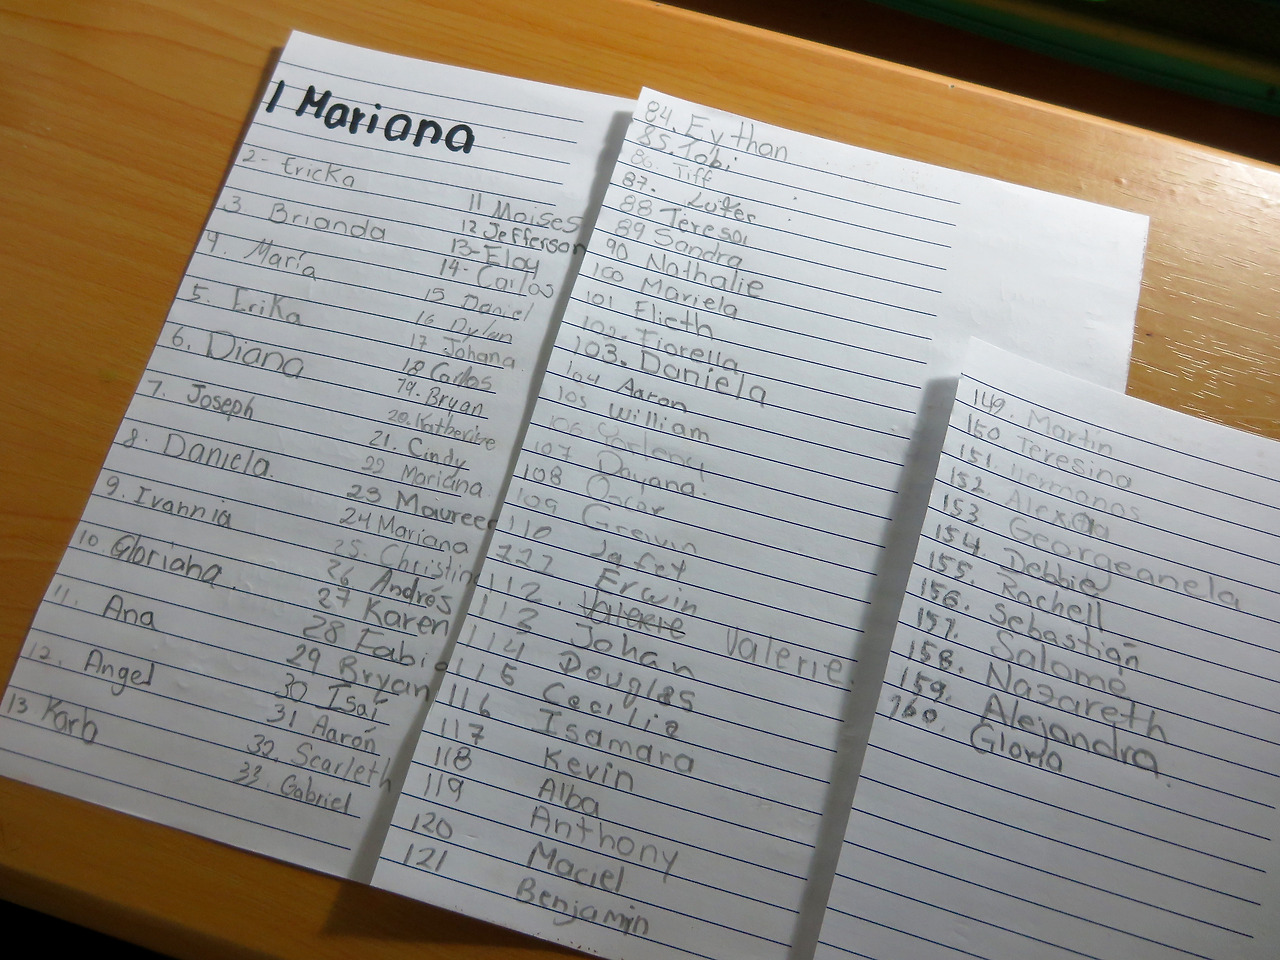 1 Mariana
2- Ericka
3 Brianda
4. María
5. Erika
6. Diana
7. Joseph
8. Daniela.
9. Ivannia
10. Gloriana
11. Ana
12. Angel
13 Karo
11 Moises
12 Jefferson
13- Eloy
14- Carlos
15 Daniel
16 Dylan
17 Johana
18 Carlos
19. Bryan
20. Katherine
21. Cindy
22 Mariana
23 Maureen
24 Mariana
25. Christin
26 Andrés
27 Karen
28 Fabi
29 Bryan
30 Isaí
31 Aarón
32. Scarleth
33. Gabriel
84. Eythan
85. Tobi
86. Tiff
87.
88 Teresa
89 Sandra
90 Nathalie
100 Mariela
101 Flieth
102. Fiorella
103. Daniela
104 Aaron
105 William
106
107 Dayana.
108 Oscar
109 Greivin
110 Jafet
111 Erwin
112. Valerie Valerie.
113 Johan
114 Douglas
115 Cecilia
116 Isamara
117 Kevin
118 Alba
119 Anthony
120 Maciel
121 Benjamin
149. Martin
150 Teresina
151. Hermanos
152. Alexa
153. Georgeanela
154. Debbie
155. Rachell
156. Sebastian
157. Salome
158. Nazareth
159. Alejandra
160. Gloria